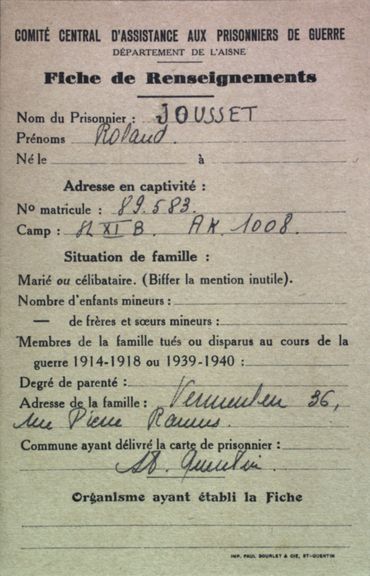 COMITÉ CENTRAL D'ASSISTANCE AUX PRISONNIERS DE GUERRE
DÉPARTEMENT DE L'AISNE
Fiche de Renseignements
Nom du Prisonnier : JOUSSET
Prénoms Roland.
Né le à
Adresse en captivité :
No matricule : 89.583.
Camp : XI B. AK. 1008.
Situation de famille :
Marié ou célibataire. (Biffer la mention inutile).
Nombre d'enfants mineurs :
— de frères et sœurs mineurs :
Membres de la famille tués ou disparus au cours de la
guerre 1914-1918 ou 1939-1940 :
Degré de parenté :
Adresse de la famille : 36,
rue Pierre Ramus.
Commune ayant délivré la carte de prisonnier :
St. Quentin.
Organisme ayant établi la Fiche
IMP. PAUL DOURLET & CIE, ST-QUENTIN